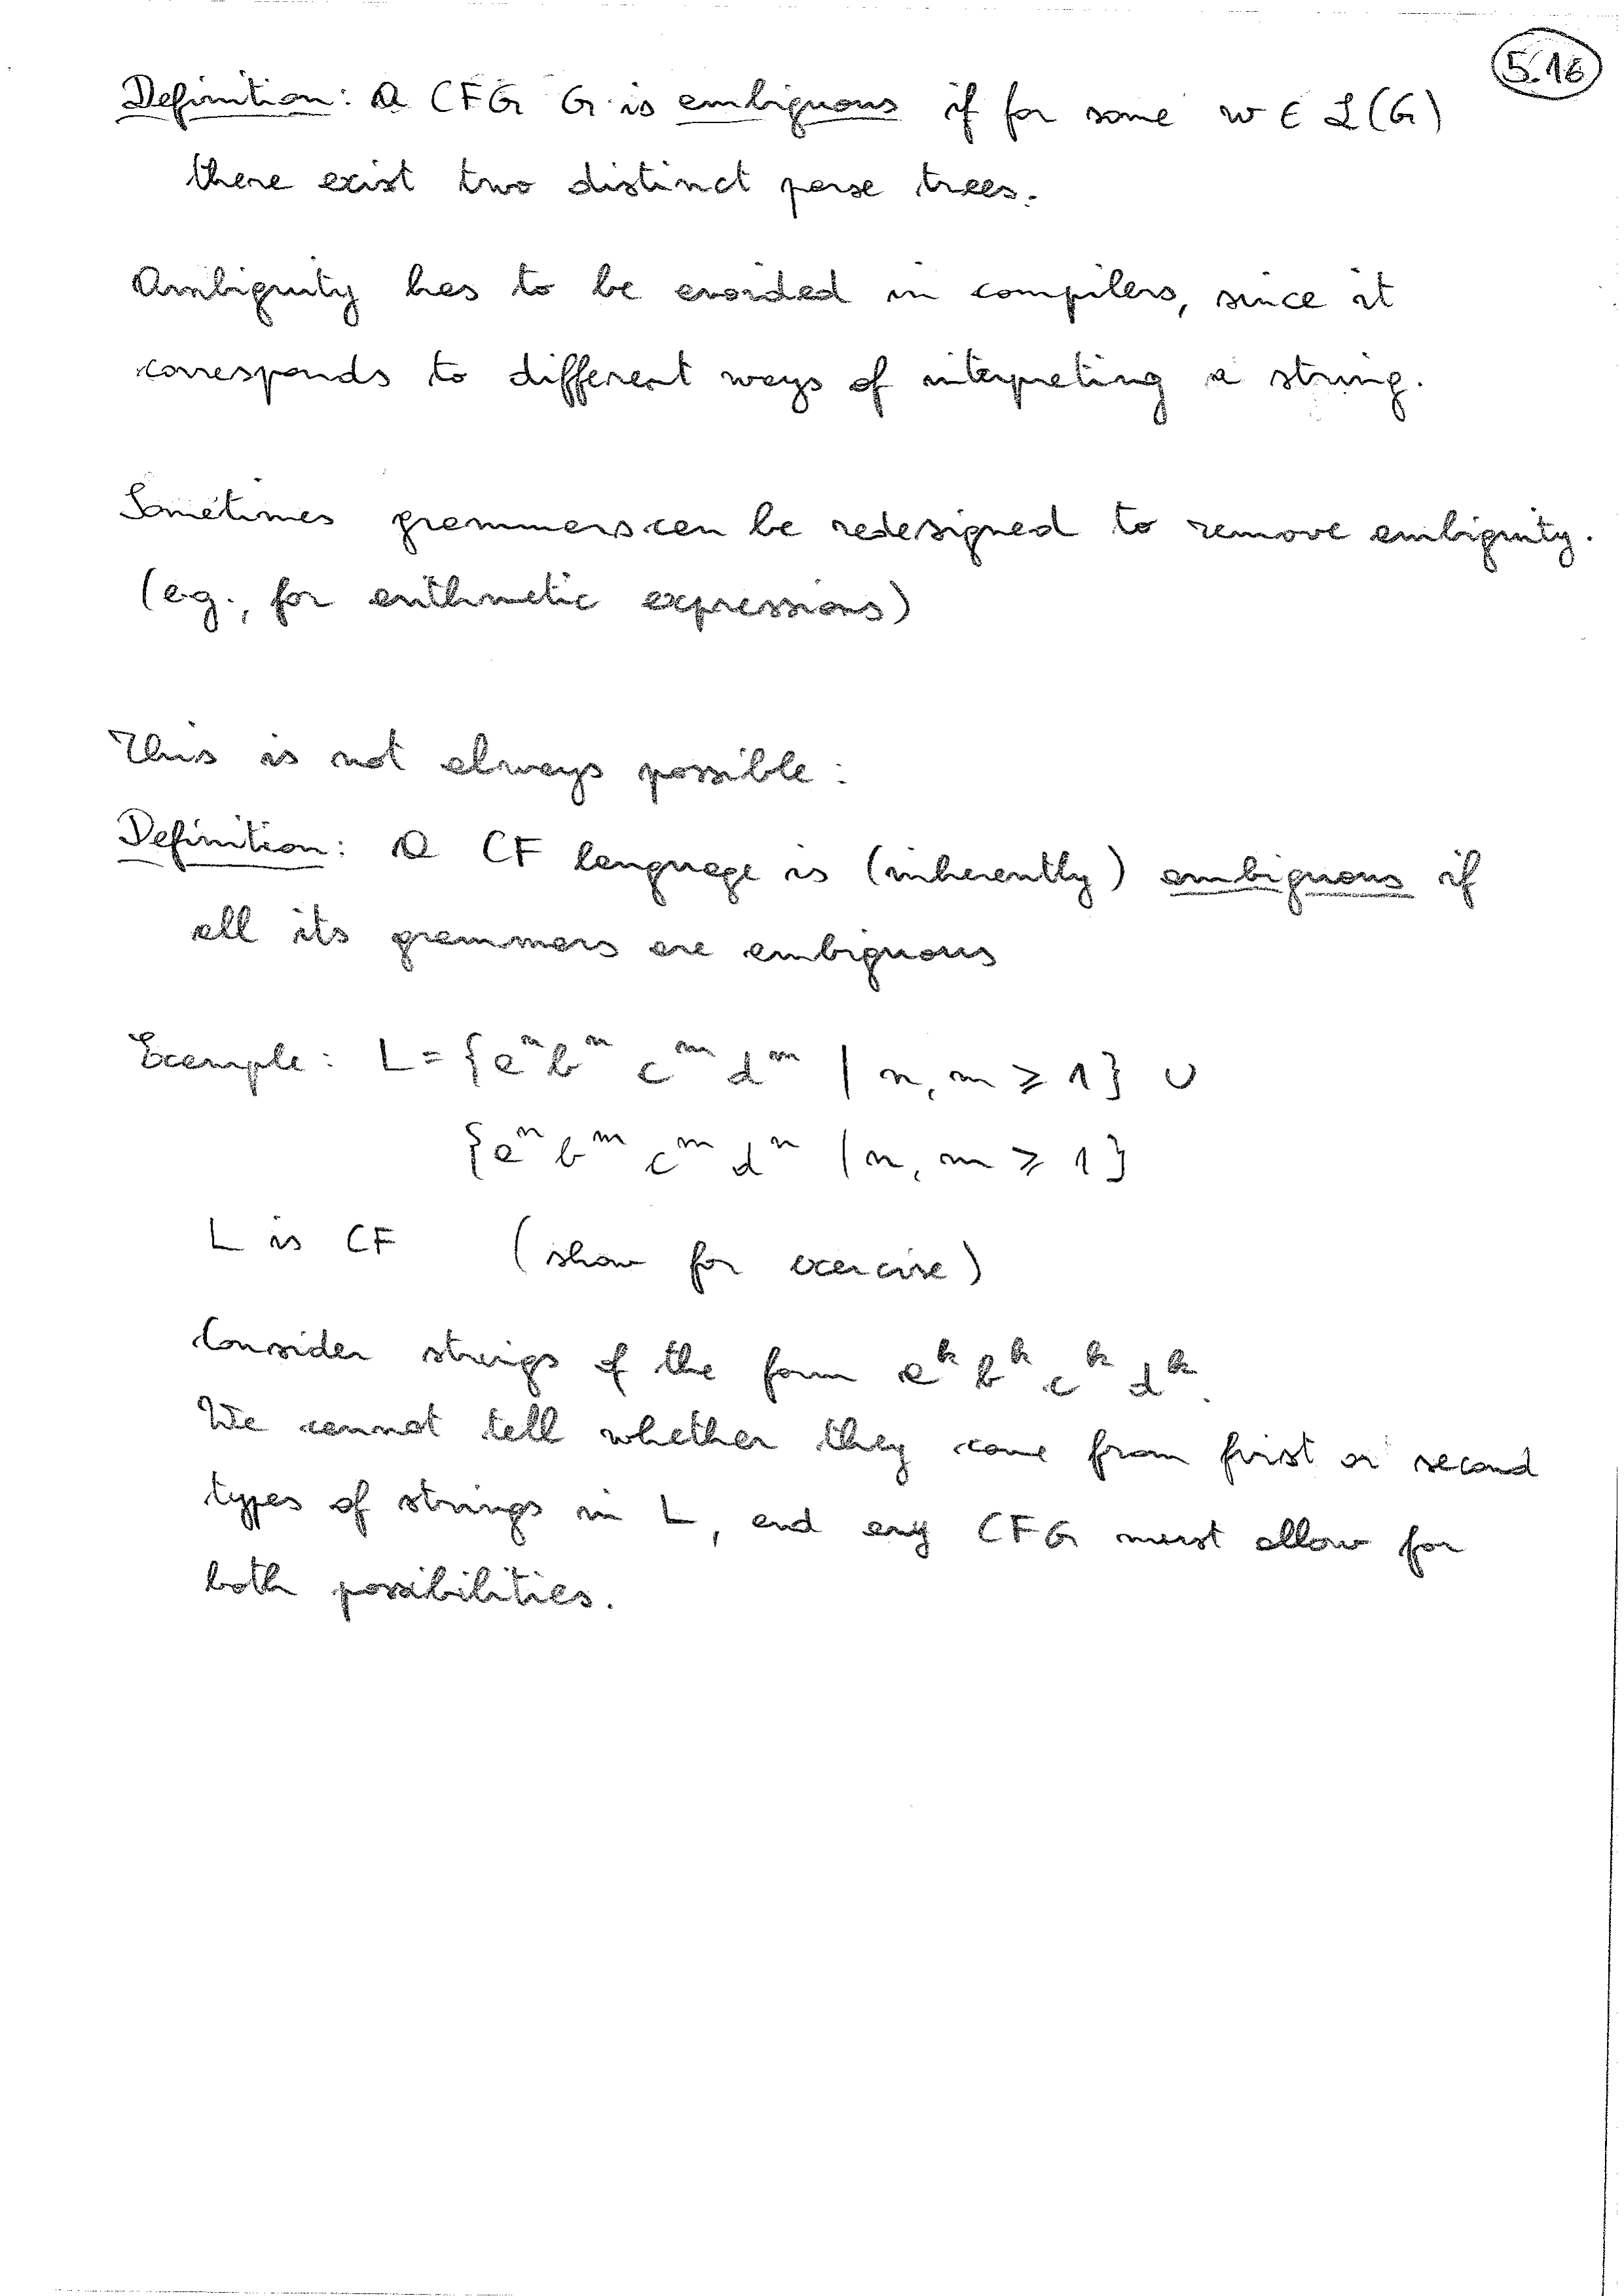 5.16
Definition: A CFG G is ambiguous if for some w ∈ L(G)
there exist two distinct parse trees.
Ambiguity has to be avoided in compilers, since it
corresponds to different ways of interpreting a string.
Sometimes grammars can be redesigned to remove ambiguity.
(e.g., for arithmetic expressions)
This is not always possible:
Definition: A CF language is (inherently) ambiguous if
all its grammars are ambiguous
Example: L = {aⁿ bⁿ cᵐ dᵐ | n, m ≥ 1} ∪
{aⁿ bᵐ cᵐ dⁿ | n, m ≥ 1}
L is CF (show for exercise)
Consider strings of the form aᵏ bᵏ cᵏ dᵏ.
We cannot tell whether they come from first or second
types of strings in L, and any CFG must allow for
both possibilities.